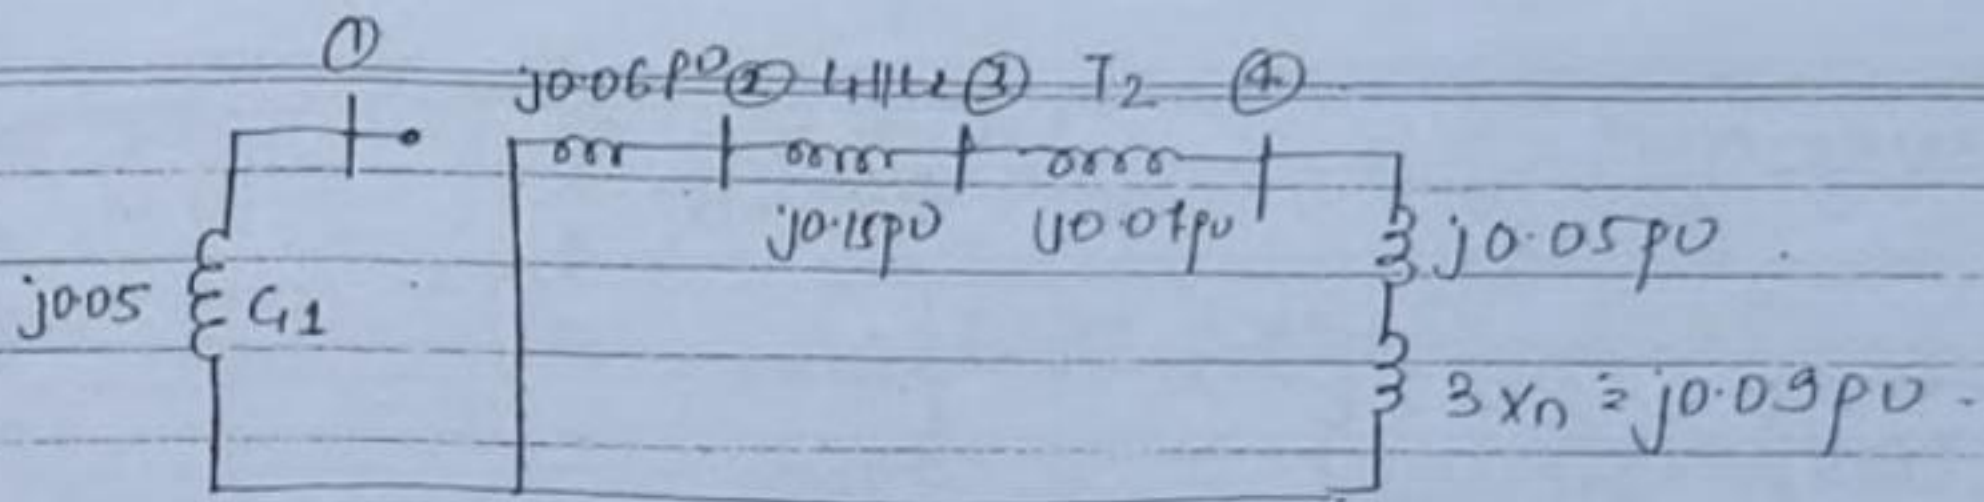 ①
j0.06pu ② L1||L2 ③ T2 ④
j0.15pu j0.07pu j0.05pu
j0.05 G1
3Xn = j0.09pu